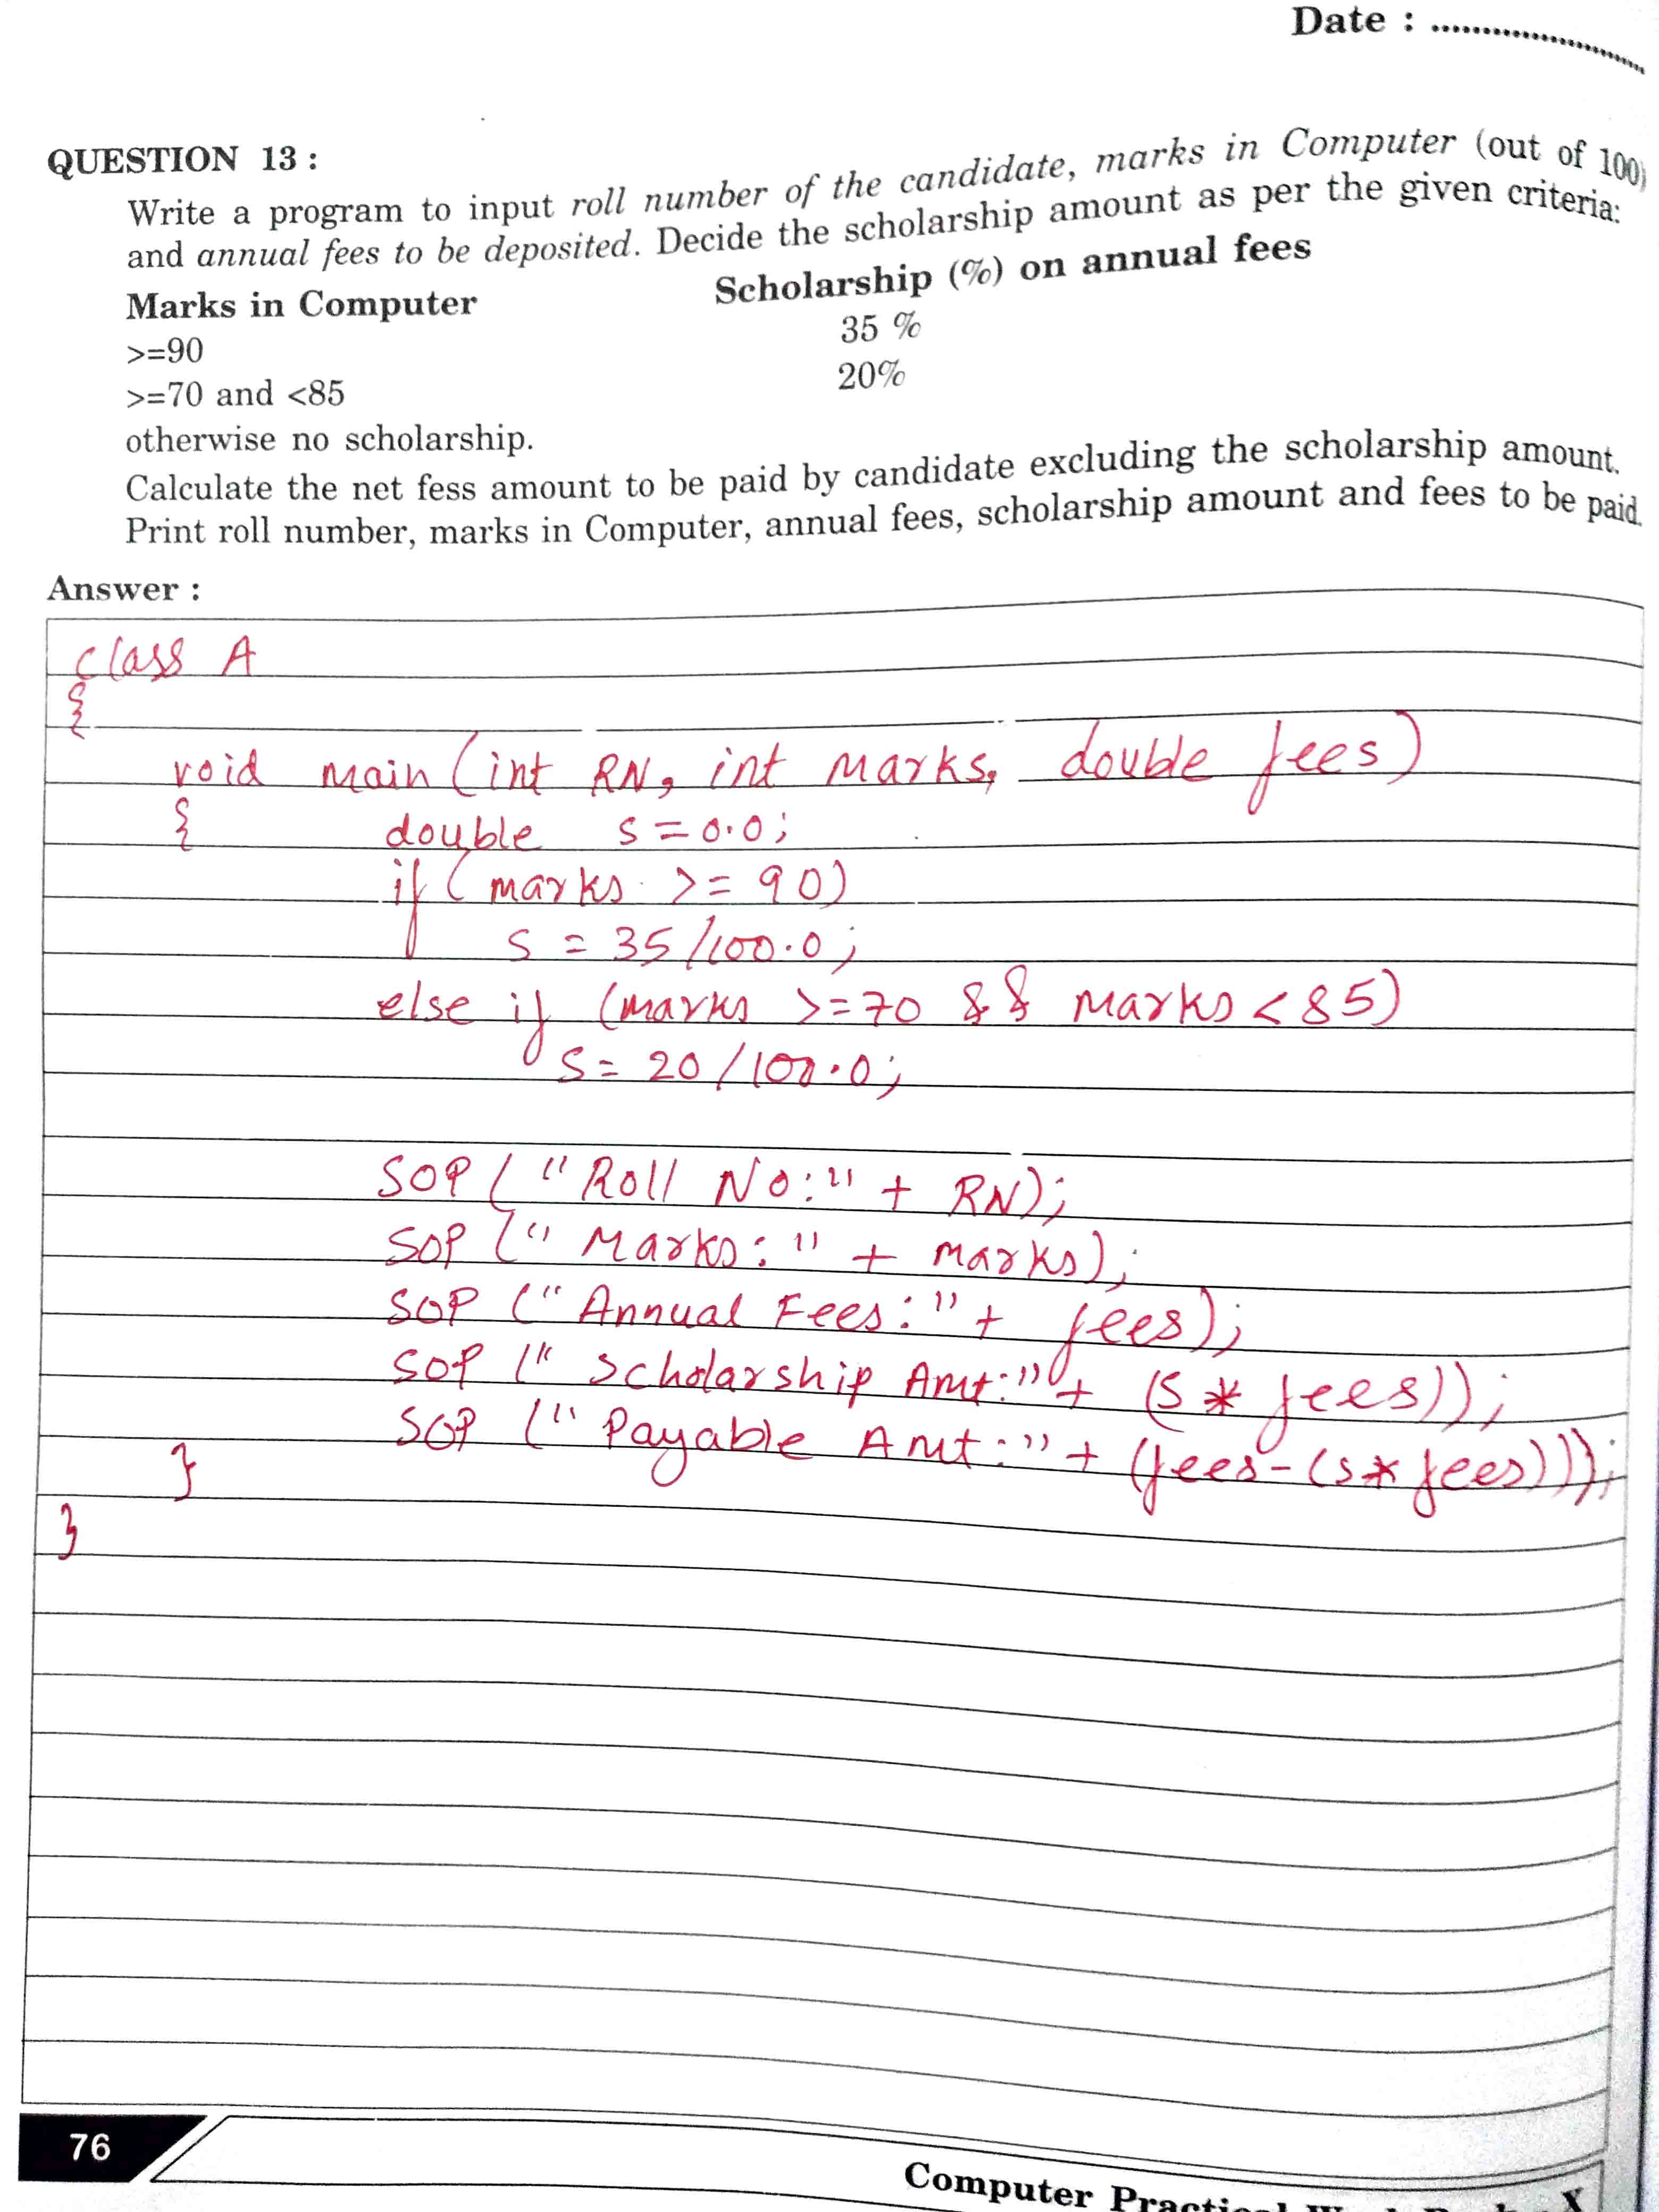 Date : ........................
QUESTION 13 :
Write a program to input roll number of the candidate, marks in Computer (out of 100)
and annual fees to be deposited. Decide the scholarship amount as per the given criteria:
Marks in Computer Scholarship (%) on annual fees
>=90 35 %
>=70 and <85 20%
otherwise no scholarship.
Calculate the net fess amount to be paid by candidate excluding the scholarship amount.
Print roll number, marks in Computer, annual fees, scholarship amount and fees to be paid.
Answer :
class A
{
void main (int RN, int marks, double fees)
{ double s = 0.0;
if ( marks >= 90)
s = 35/100.0;
else if (marks >=70 && marks < 85)
s = 20/100.0;
SOP ( "Roll No:" + RN);
SOP (" Marks: " + marks);
SOP (" Annual Fees: " + fees);
SOP (" Scholarship Amt:" + (s * fees));
SOP (" Payable Amt:" + (fees-(s* fees)));
}
}
76
Computer